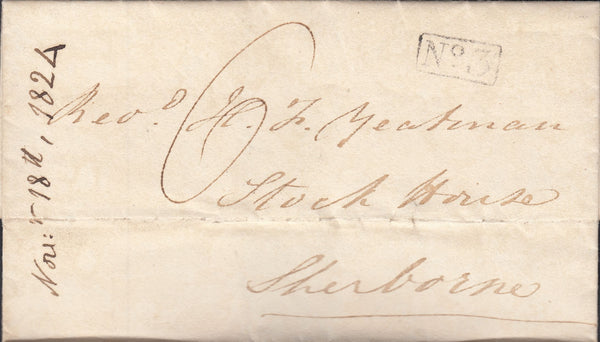 No. 3
6
Revd. H. F. Yeatman
Stock House
Sherborne
Novr. 18th, 1824